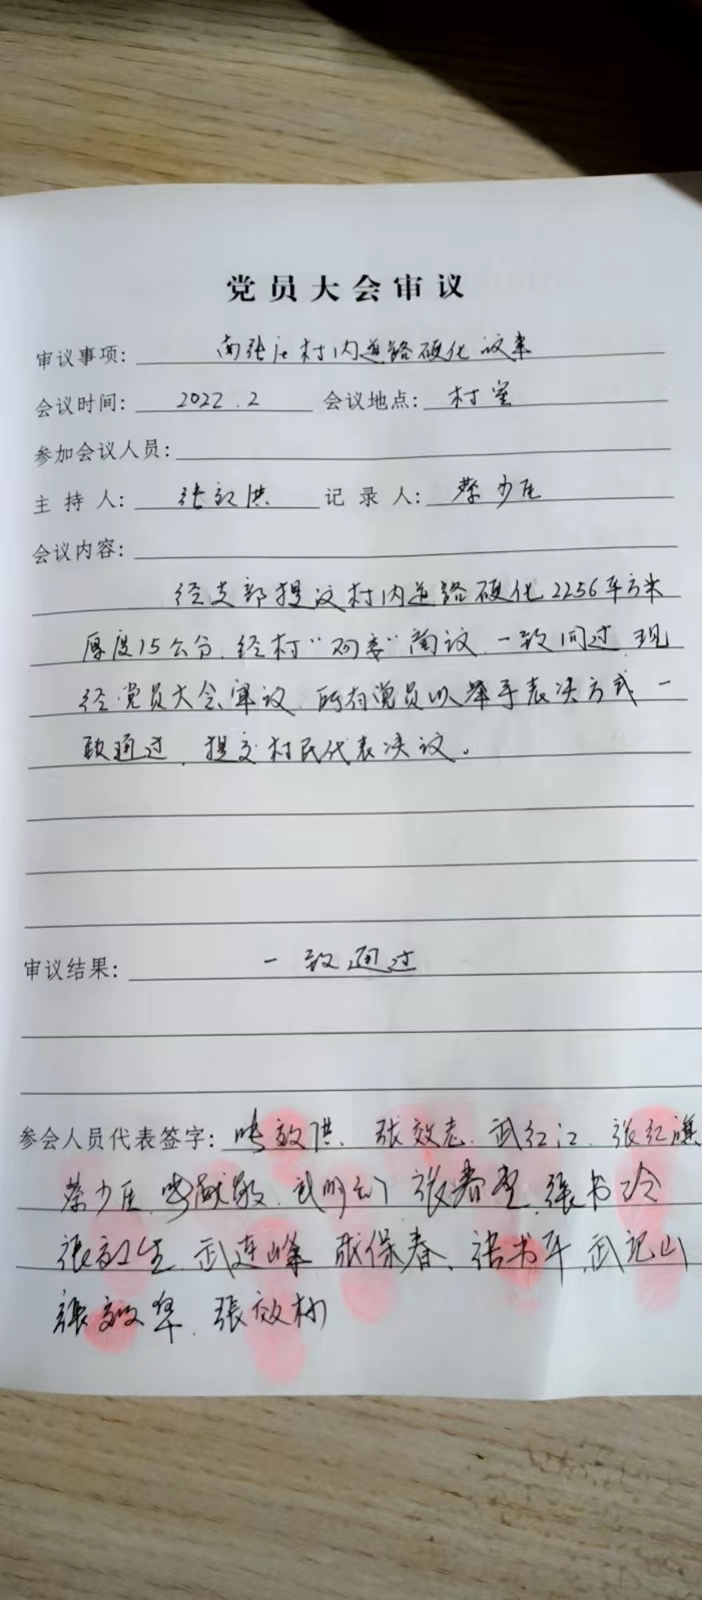 党员大会审议
审议事项: 南张庄村内道路硬化议案
会议时间: 2022.2 会议地点: 村室
参加会议人员:
主持人: 张效洪 记录人: 蔡少臣
会议内容:
经支部提议村内道路硬化2256平方米
厚度15公分.经村“两委”商议.一致同过.现
经党员大会审议.所有党员以举手表决方式一
致通过.提交村民代表决议。
审议结果: 一致通过
参会人员代表签字: 张效洪. 张效志. 武红江. 张红旗
蔡少臣. 张献敬. 张春 张书
张效生 武连峰 张保春. 张书平. 武记山
张效华. 張效村